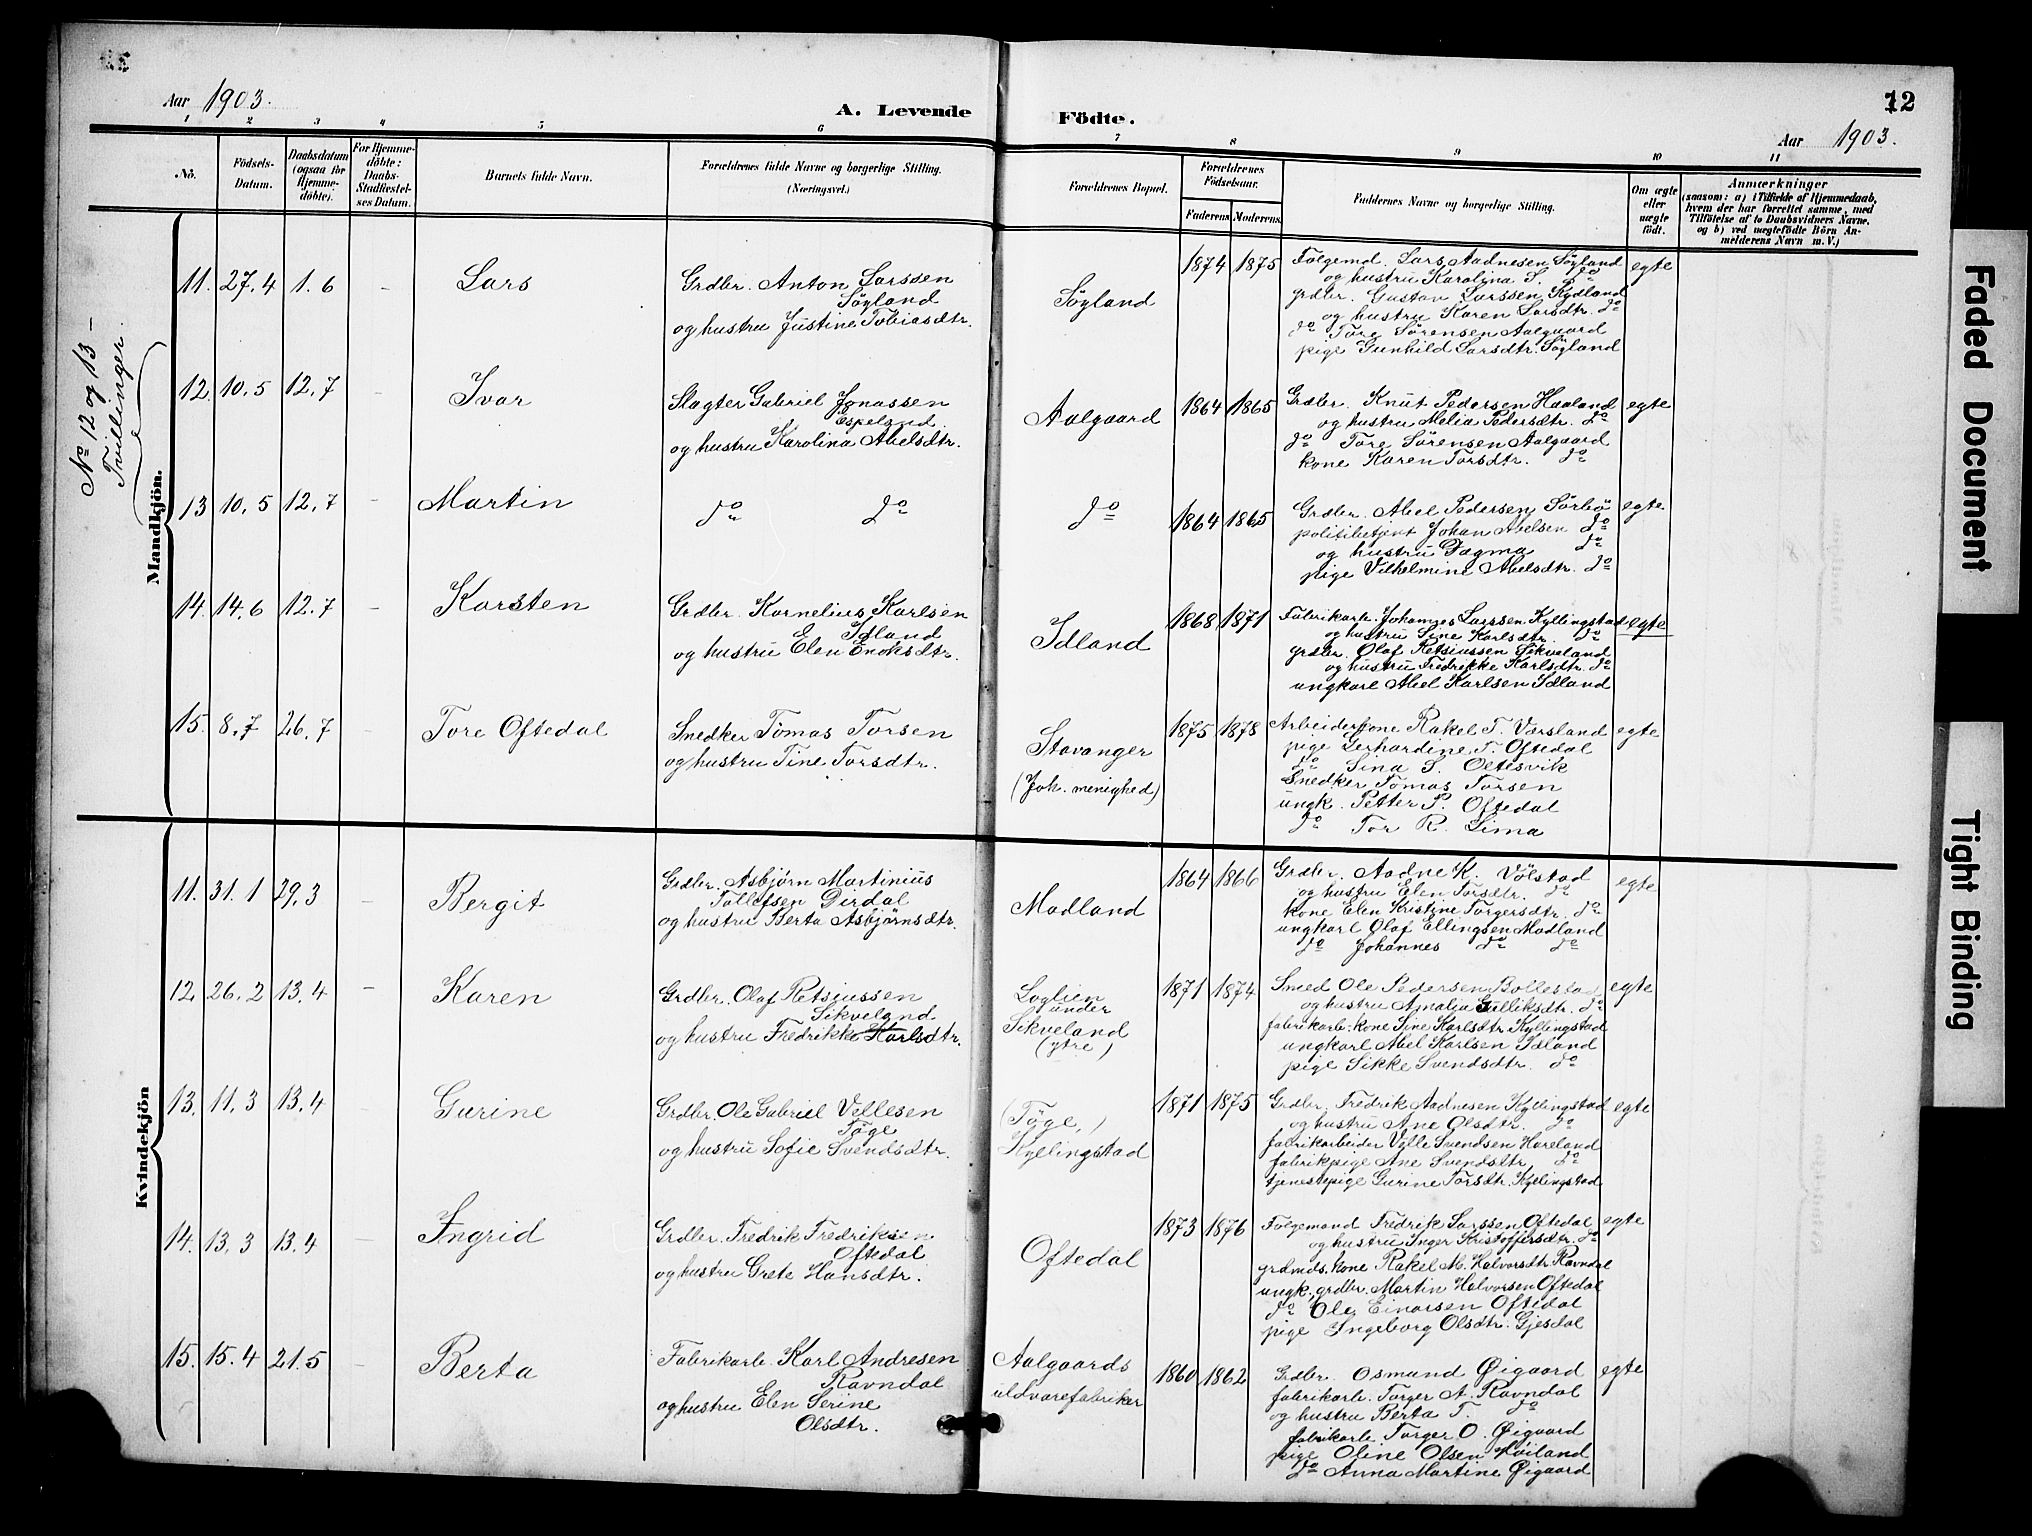 Aar 1903.
A. Levende
Födte.
12
Aar 1903.
1 2 3 4 5 6 7 8 9 10 11
No.
Födsels-
Datum.
Daabsdatum
(ogsaa for
Hjemme-
döbte).
For Hjemme-
döbte:
Daabs-
Stadfæstel-
ses Datum.
Barnets fulde Navn.
Forældrenes fulde Navne og borgerlige Stilling.
(Næringsvei.)
Forældrenes Bopæl.
Forældrenes
Födselsaar.
Faderens
Moderens.
Faddernes Navne og borgerlige Stilling.
Om ægte
eller
uægte
födt.
Anmærkninger
(saasom: a) i Tilfælde af Hjemmedaab,
hvem der har forrettet samme, med
Tilföielse af to Daabsvidners Navne.
og b) ved uægtefödte Börn An-
melderens Navn m. V.)
No 12 og 13 -
Tvillinger.
Mandkjön.
11. 27.4 1.6 - Lars
Grdbr. Anton Larssen
Söyland
og hustru Justine Tobiasdtr.
Söyland
1874 1875
Folgemd. Lars Aadnesen Söyland
og hustru Karolina S. do
grdbr. Gustav Larssen Kydland
og hustru Karen Larsdtr. do
do Tore Sörensen Aalgaard
pige Gunhild Larsdtr. Söyland
egte
12. 10.5 12.7 - Ivar
Slagter Gabriel Jonassen
Espeland
og hustru Karolina Abelsdtr.
Aalgaard
1864 1865
Grdbr. Knut Pedersen Haaland
og hustru Melia Pedersdtr. do
do Tore Sörensen Aalgaard
kone Karen Torsdtr. do
egte
13 10.5 12.7 - Martin
do do
do
1864 1865
Grdbr. Abel Pedersen Sörbö
politibetjent Johan Abelsen do
og hustru Dagma do
pige Vilhelmine Abelsdtr. do
egte
14. 14.6 12.7 - Karsten
Grdbr. Kornelius Karlsen
Idland
og hustru Elen Enoksdtr.
Idland
1868 1871
Fabrikarb. Johannes Larssen Kyllingstad
og hustru Sine Karlsdtr. do
grdbr. Olaf Retsiussen Sikveland
og hustru Fredrikke Karlsdtr. do
ungkarl Abel Karlsen Idland
egte
15. 8.7 26.7 - Tore Oftedal
Snedker Tomas Torsen
og hustru Tine Torsdtr.
Stavanger
(Joh. menighed)
1875 1878
Arbeiderkone Rakel T. Værsland
pige Gerhardine T. Oftedal
do Sina S. Oltesvik
Snedker Tomas Torsen
ungk. Petter P. Oftedal
do Tor R. Lima
egte
Kvindekjön
11. 31.1 29.3 - Bergit
Grdbr. Asbjörn Martinius
Tollefsen Dirdal
og hustru Berta Asbjörnsdtr.
Madland
1864 1866
Grdbr. Aadne K. Völstad
og hustru Elen Torsdtr. do
kone Elen Kristine Torgersdtr. do
ungkarl Olaf Ellingsen Madland
do Johannes do do
egte
12. 26.2 13.4 - Karen
Grdbr. Olaf Retsiussen
Sikveland
og hustru Fredrikke Karlsdtr.
under
Sikveland
(ytre)
1871 1874
Smed Ole Pedersen Bollestad
og hustru Amalia Gulliksdtr. do
fabrikarb. kone Sine Karlsdtr. Kyllingstad
ungkarl Abel Karlsen Idland
pige Sikke Svendsdtr. do
egte
13. 11.3 13.4 - Gurine
Grdbr. Ole Gabriel Vellesen
Töge
og hustru Sofie Svendsdtr.
(Töge,)
Kyllingstad
1871 1875
Grdbr. Fredrik Aadnesen Kyllingstad
og hustru Ane Olsdtr. do
fabrikarbeider Velle Svendsen Hareland
fabrikpige Ane Svendsdtr. do
tjenestepige Gurine Torsdtr. Kyllingstad
egte
14. 13.3 13.4 - Ingrid
Grdbr. Fredrik Fredriksen
Oftedal
og hustru Grete Hansdtr.
Oftedal
1873 1876
Folgemand Fredrik Larssen Oftedal
og hustru Inger Kristoffersdtr. do
grdmds. kone Rakel M. Halvorsdtr. Ravndal
ungk. grdbr. Martin Halvorsen Oftedal
do Ole Einarsen Oftedal
pige Ingeborg Olsdtr. Gjesdal
egte
15. 15.4 21.5 - Berta
Fabrikarb. Karl Andresen
Ravndal
og hustru Elen Serine
Olsdtr.
Aalgaards
uldvarefabriker
1860 1862
Grdbr. Osmund Øigaard
fabrikarb. Torger A. Ravndal
og hustru Berta T. do
fabrikarb. Torger O. Øigaard
pige Oline Olsen Höiland
do Anna Martine Øigaard
egte
Faded Document
Tight Binding